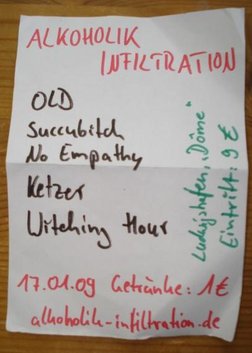 ALKOHOLIK
INFILTRATION
OLD
Succubitch
No Empathy
Ketzer
Witching Hour
Ludwigshafen, „Dôme“
Eintritt: 9 €
17.01.09 Getränke: 1€
alkoholik-infiltration.de